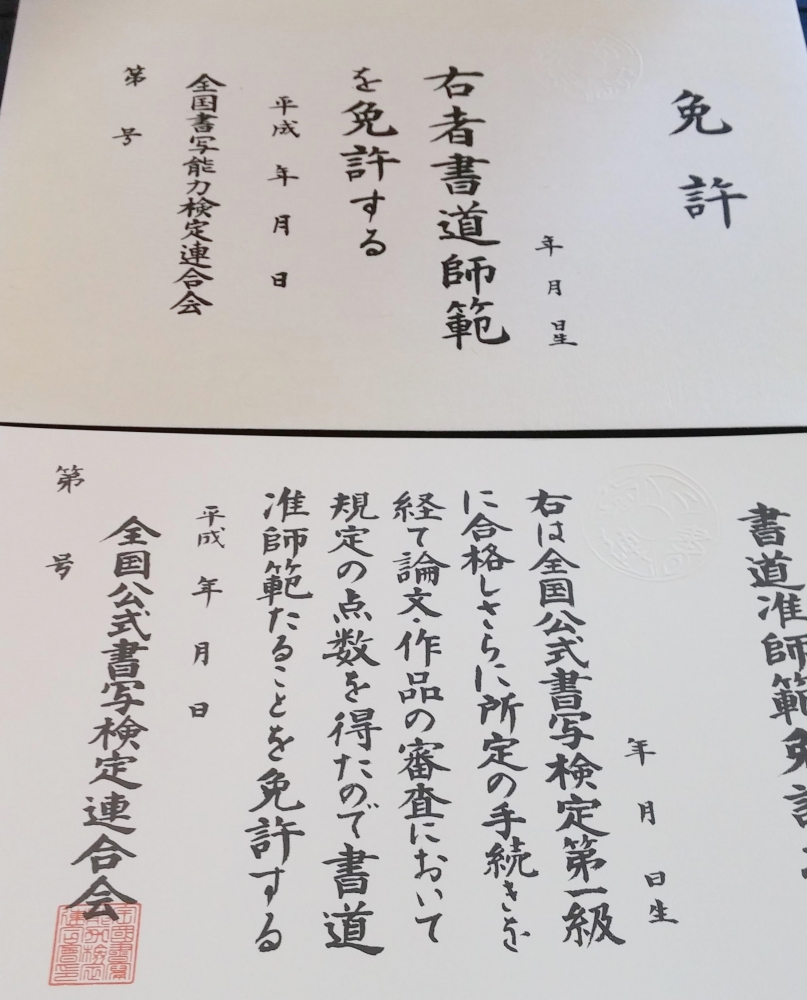 免許
年 月 日生
右者書道師範
を免許する
平成 年 月 日
全国書写能力検定連合会
第 号
書道准師範免許
年 月 日生
右は全国公式書写検定第一級
に合格しさらに所定の手続きを
経て論文・作品の審査において
規定の点数を得たので書道
准師範たることを免許する
平成 年 月 日
全国公式書写検定連合会
第 号